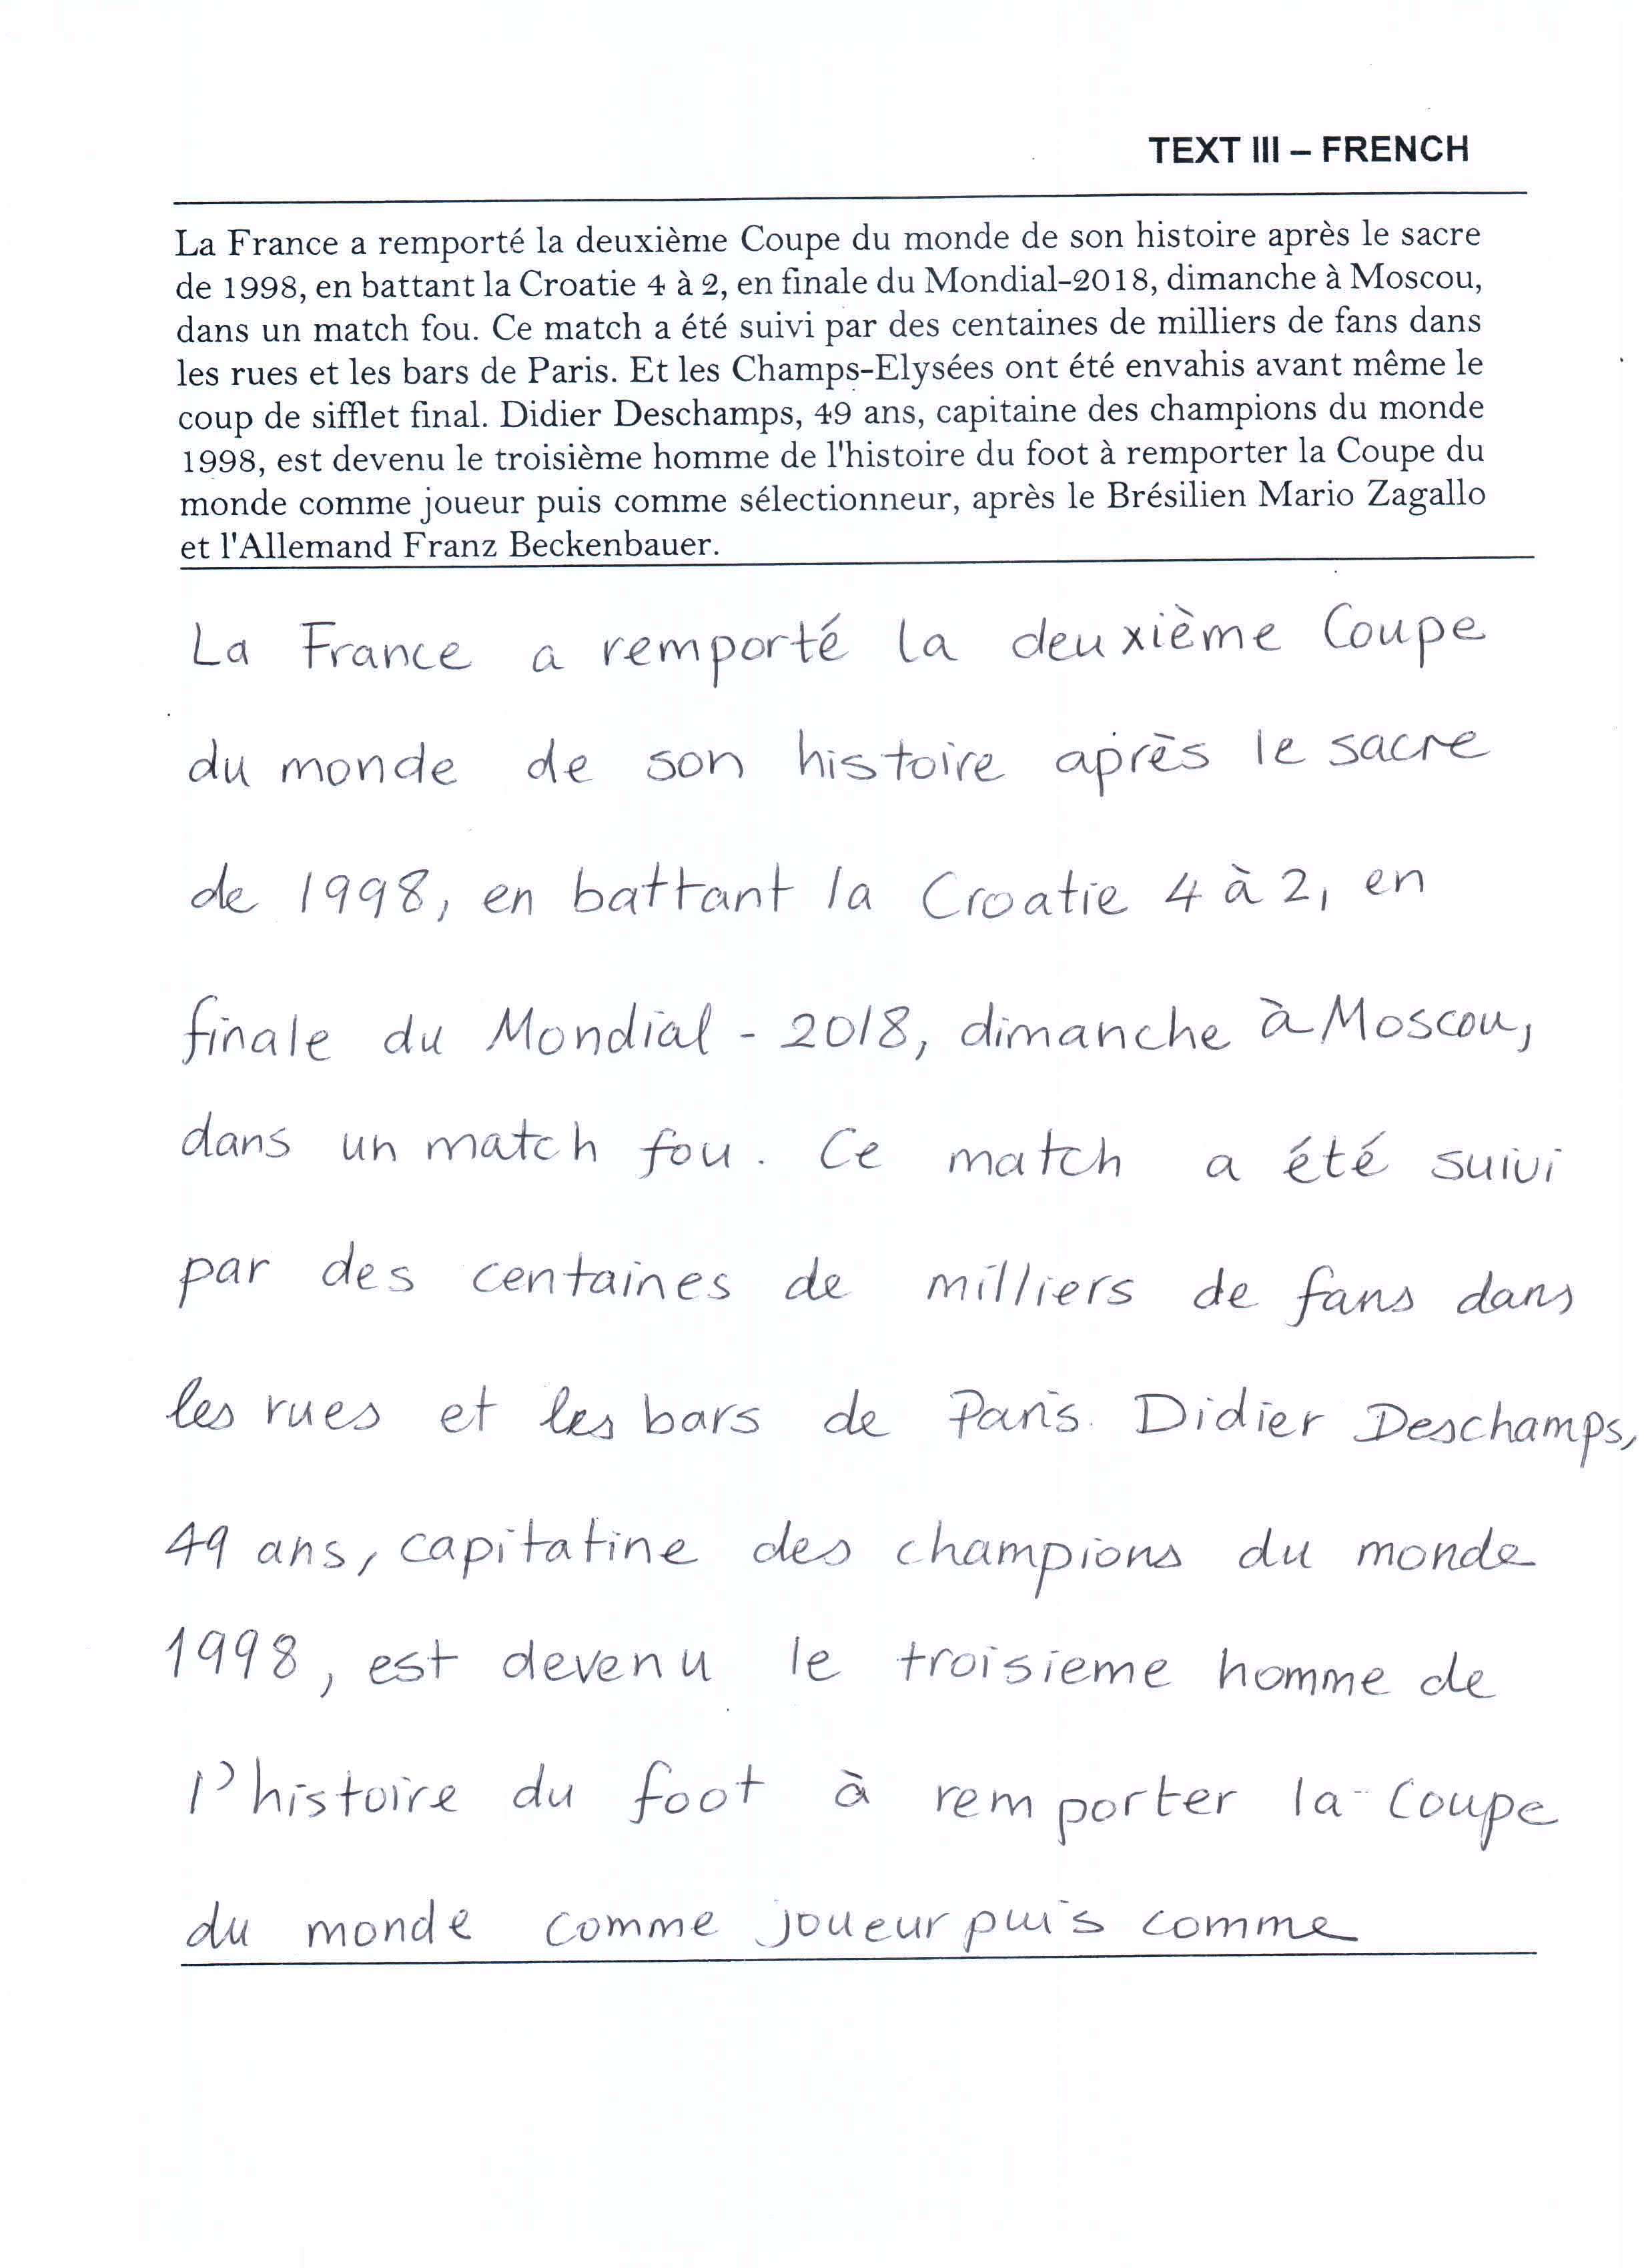 TEXT III – FRENCH
La France a remporté la deuxième Coupe du monde de son histoire après le sacre
de 1998, en battant la Croatie 4 à 2, en finale du Mondial-2018, dimanche à Moscou,
dans un match fou. Ce match a été suivi par des centaines de milliers de fans dans
les rues et les bars de Paris. Et les Champs-Elysées ont été envahis avant même le
coup de sifflet final. Didier Deschamps, 49 ans, capitaine des champions du monde
1998, est devenu le troisième homme de l'histoire du foot à remporter la Coupe du
monde comme joueur puis comme sélectionneur, après le Brésilien Mario Zagallo
et l'Allemand Franz Beckenbauer.
La France a remporté la deuxième Coupe
du monde de son histoire après le sacre
de 1998, en battant la Croatie 4 à 2, en
finale du Mondial - 2018, dimanche à Moscou,
dans un match fou. Ce match a été suivi
par des centaines de milliers de fans dans
les rues et les bars de Paris. Didier Deschamps,
49 ans, capitatine des champions du monde
1998, est devenu le troisieme homme de
l'histoire du foot à remporter la Coupe
du monde comme joueur puis comme